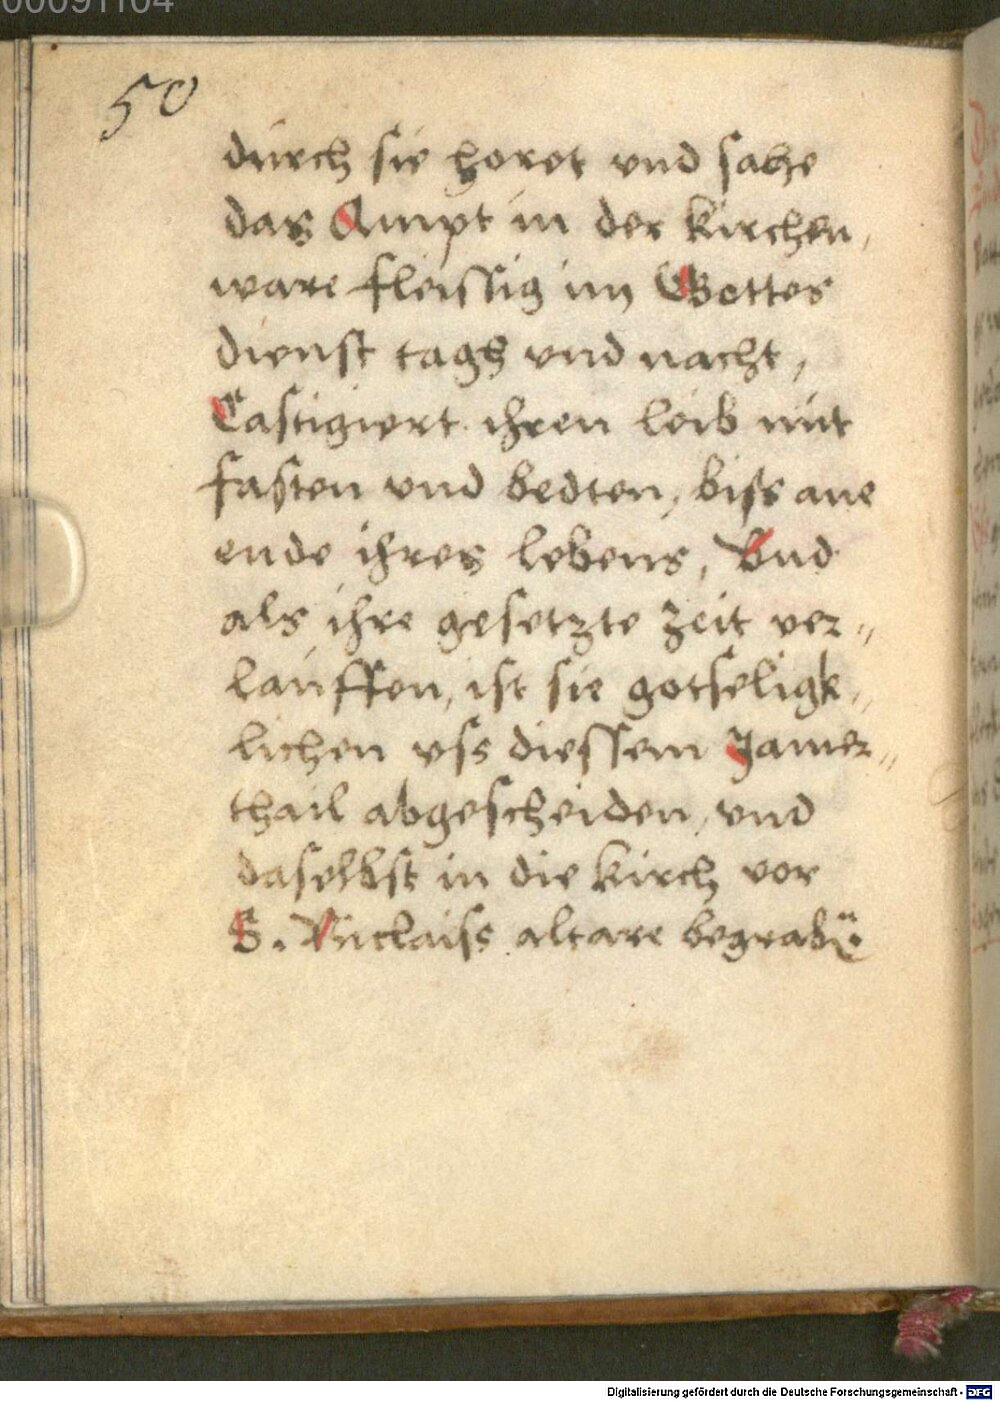 50
durch sie horet vnd sahe
das Ampt in der kirchen,
ware fleissig im Gottes
dienst tags vnd nacht,
Castigiert ihren leib mit
fasten vnd bedten, biss ane
ende ihres lebens, Vnd
als ihre gesetzte zeit ver„
lauffen, ist sie gotselig„
lichen vss diessem Jamer„
thail abgescheiden, vnd
daselbst in die kirch vor
S. Niclaiss altare begrabē.
Digitalisierung gefördert durch die Deutsche Forschungsgemeinschaft - DFG